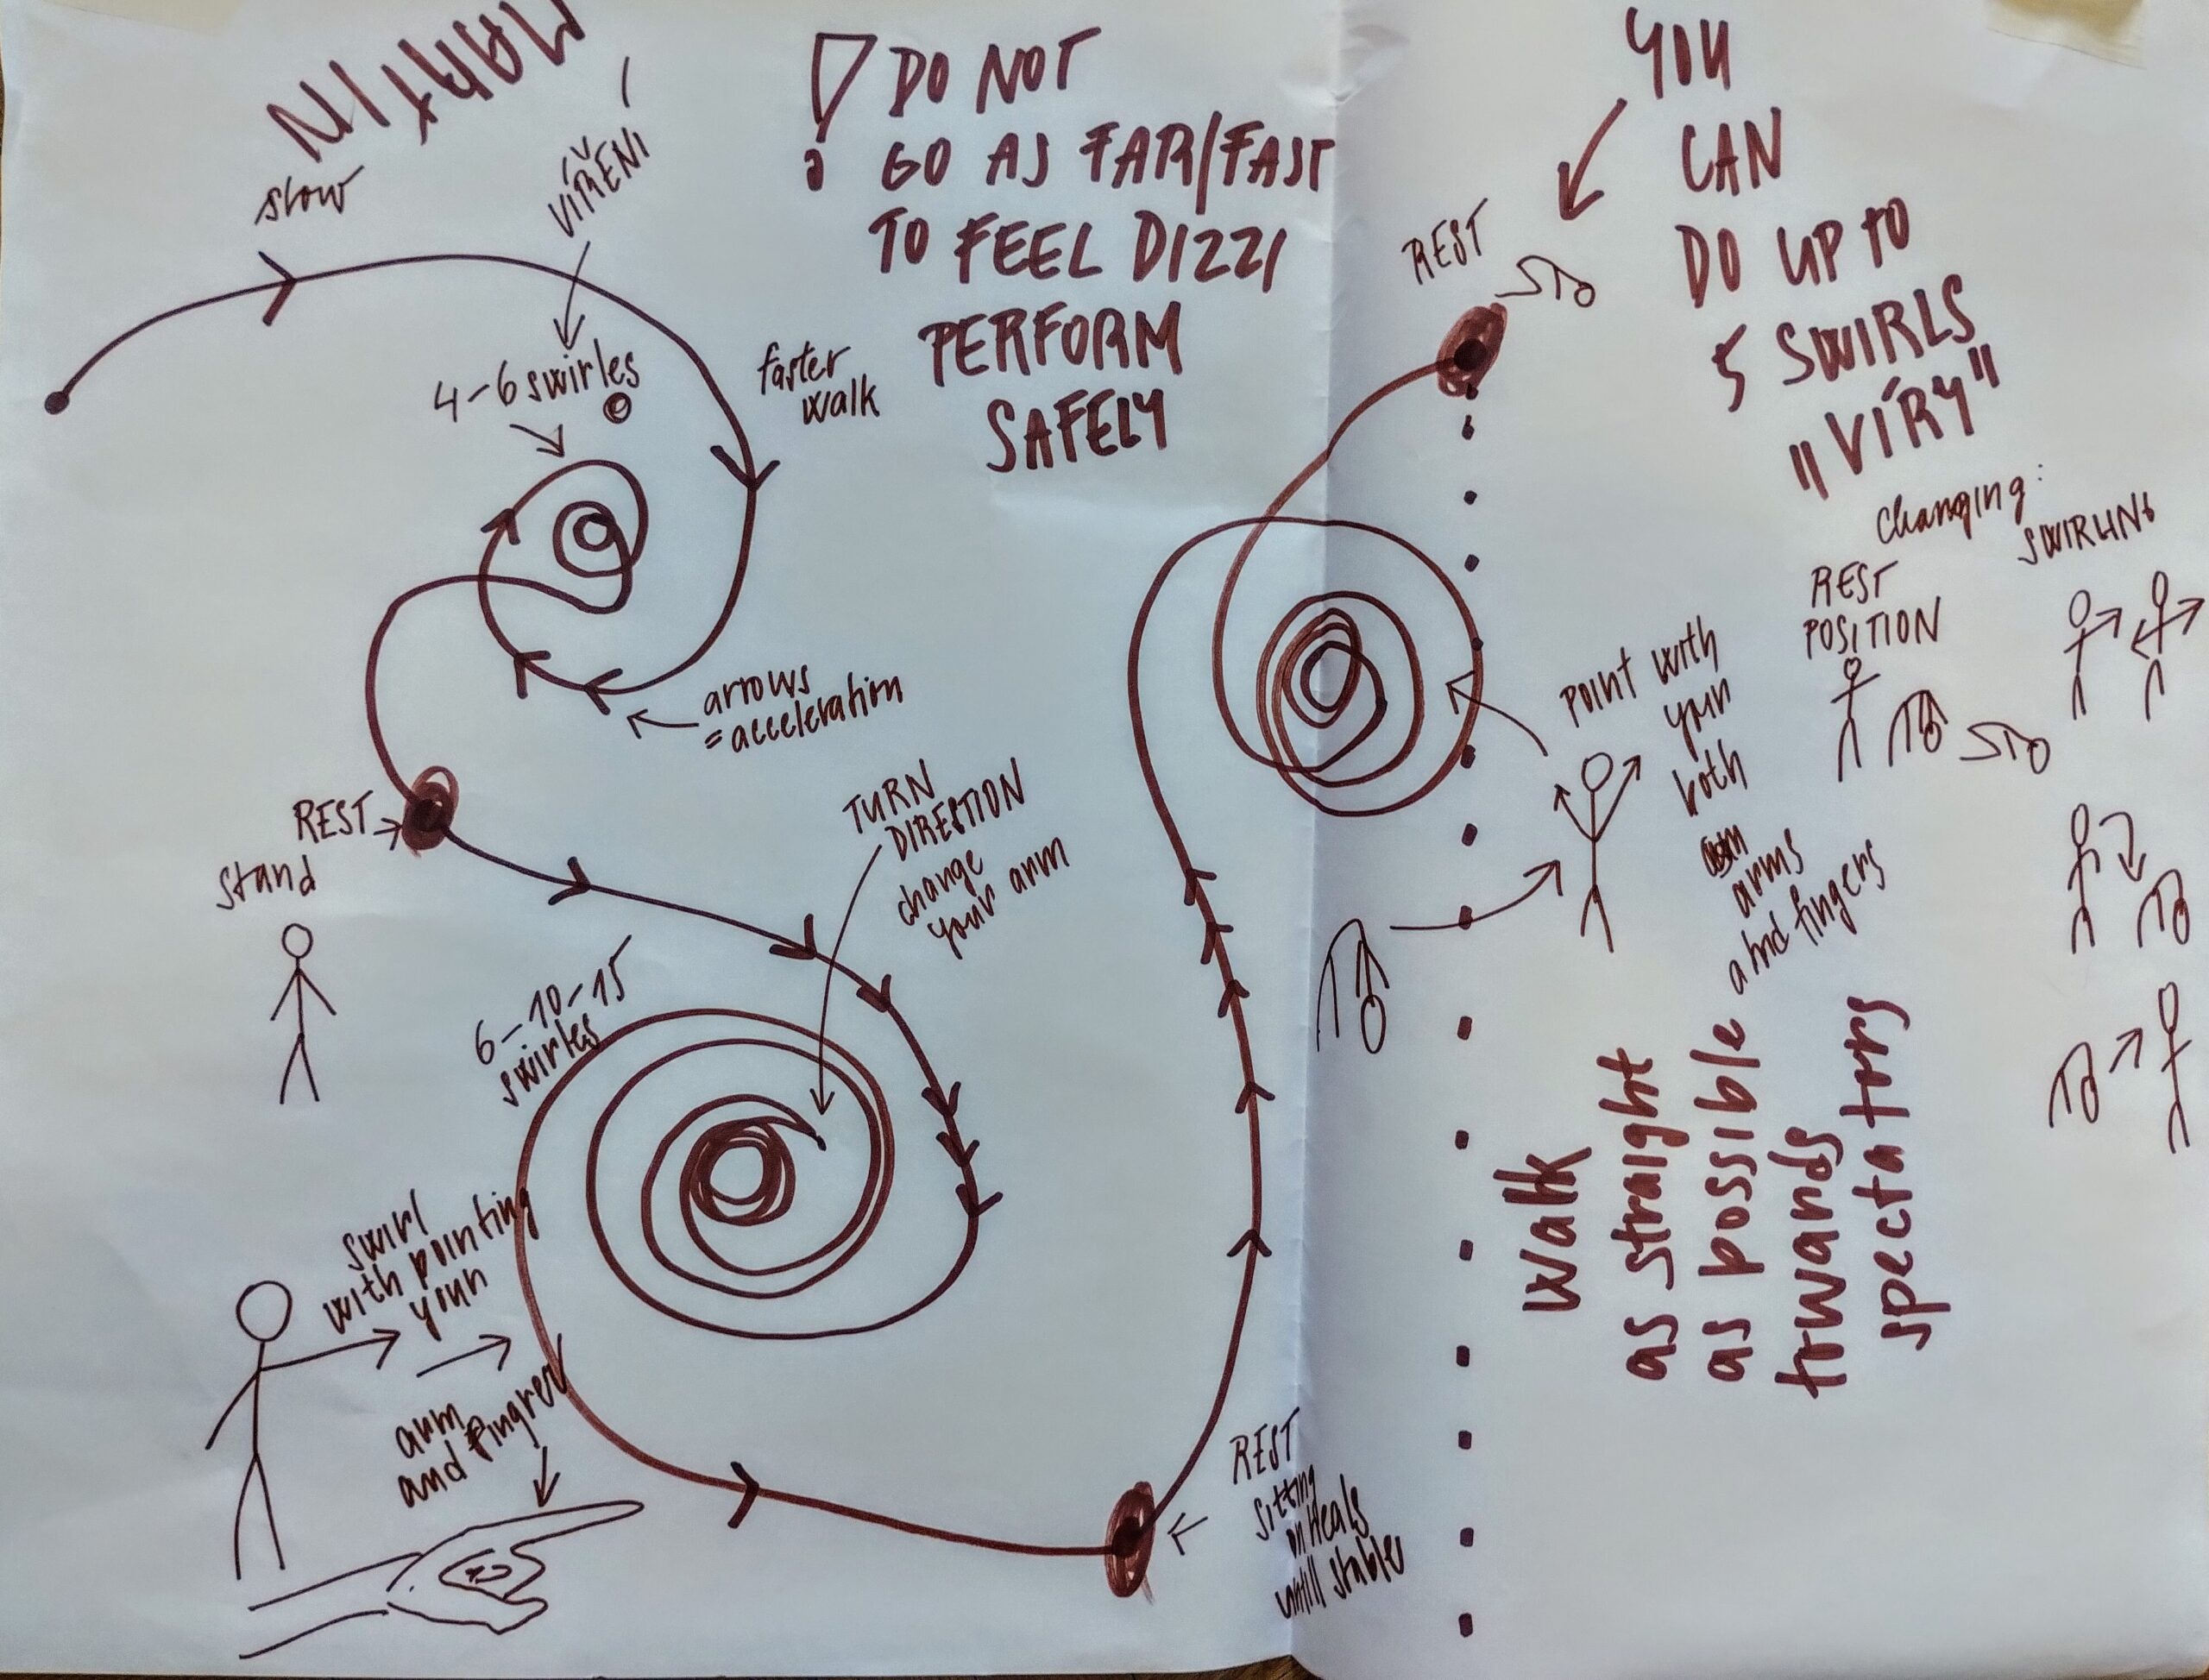 MARTIN
slow
VÍŘENÍ
4-6 swirles
faster
walk
! DO NOT
GO AS FAR/FAST
TO FEEL DIZZI
PERFORM
SAFELY
arrows
= acceleration
REST
stand
TURN
DIRECTION
change
your arm
6-10-15
swirles
swirl
with pointing
your
arm
and fingrer
REST
sitting
on Heals
untill stable
YOU
CAN
DO UP TO
5 SWIRLS
"VÍRY"
REST
changing:
SWIRLING
REST
POSITION
POINT with
your
both
arms
and fingers
walk
as straight
as possible
towards
spectators